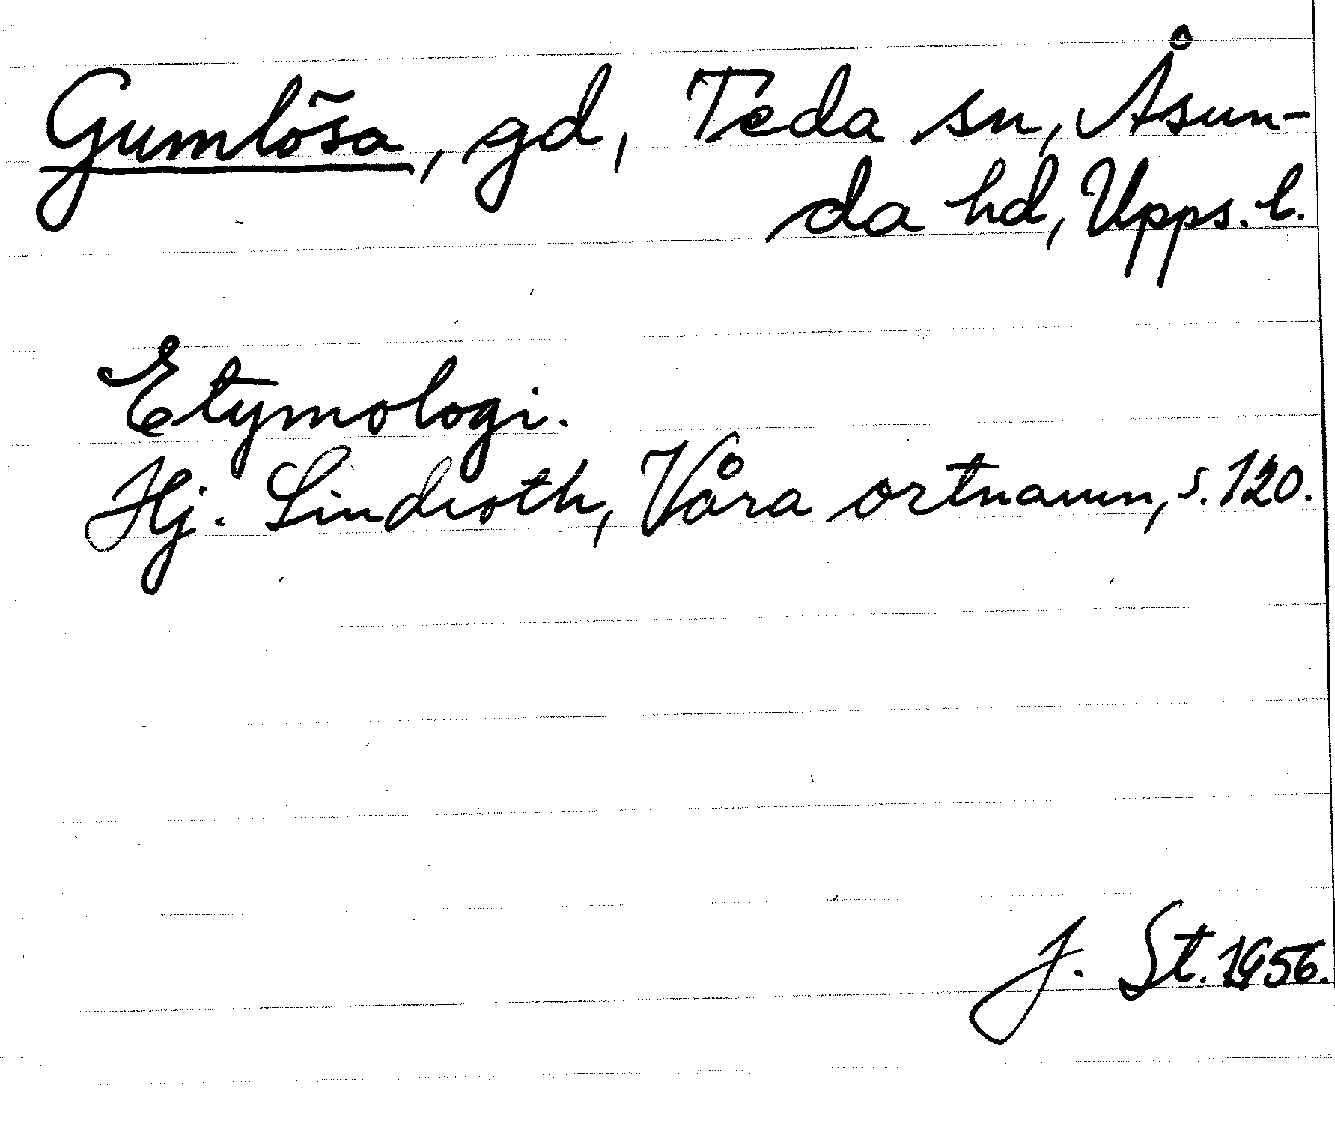 Gumlösa, gd, Teda sn, Åsun-
da hd, Upps. l.
Etymologi.
Hj. Lindroth, Våra ortnamn, s. 120.
J. St. 1956.